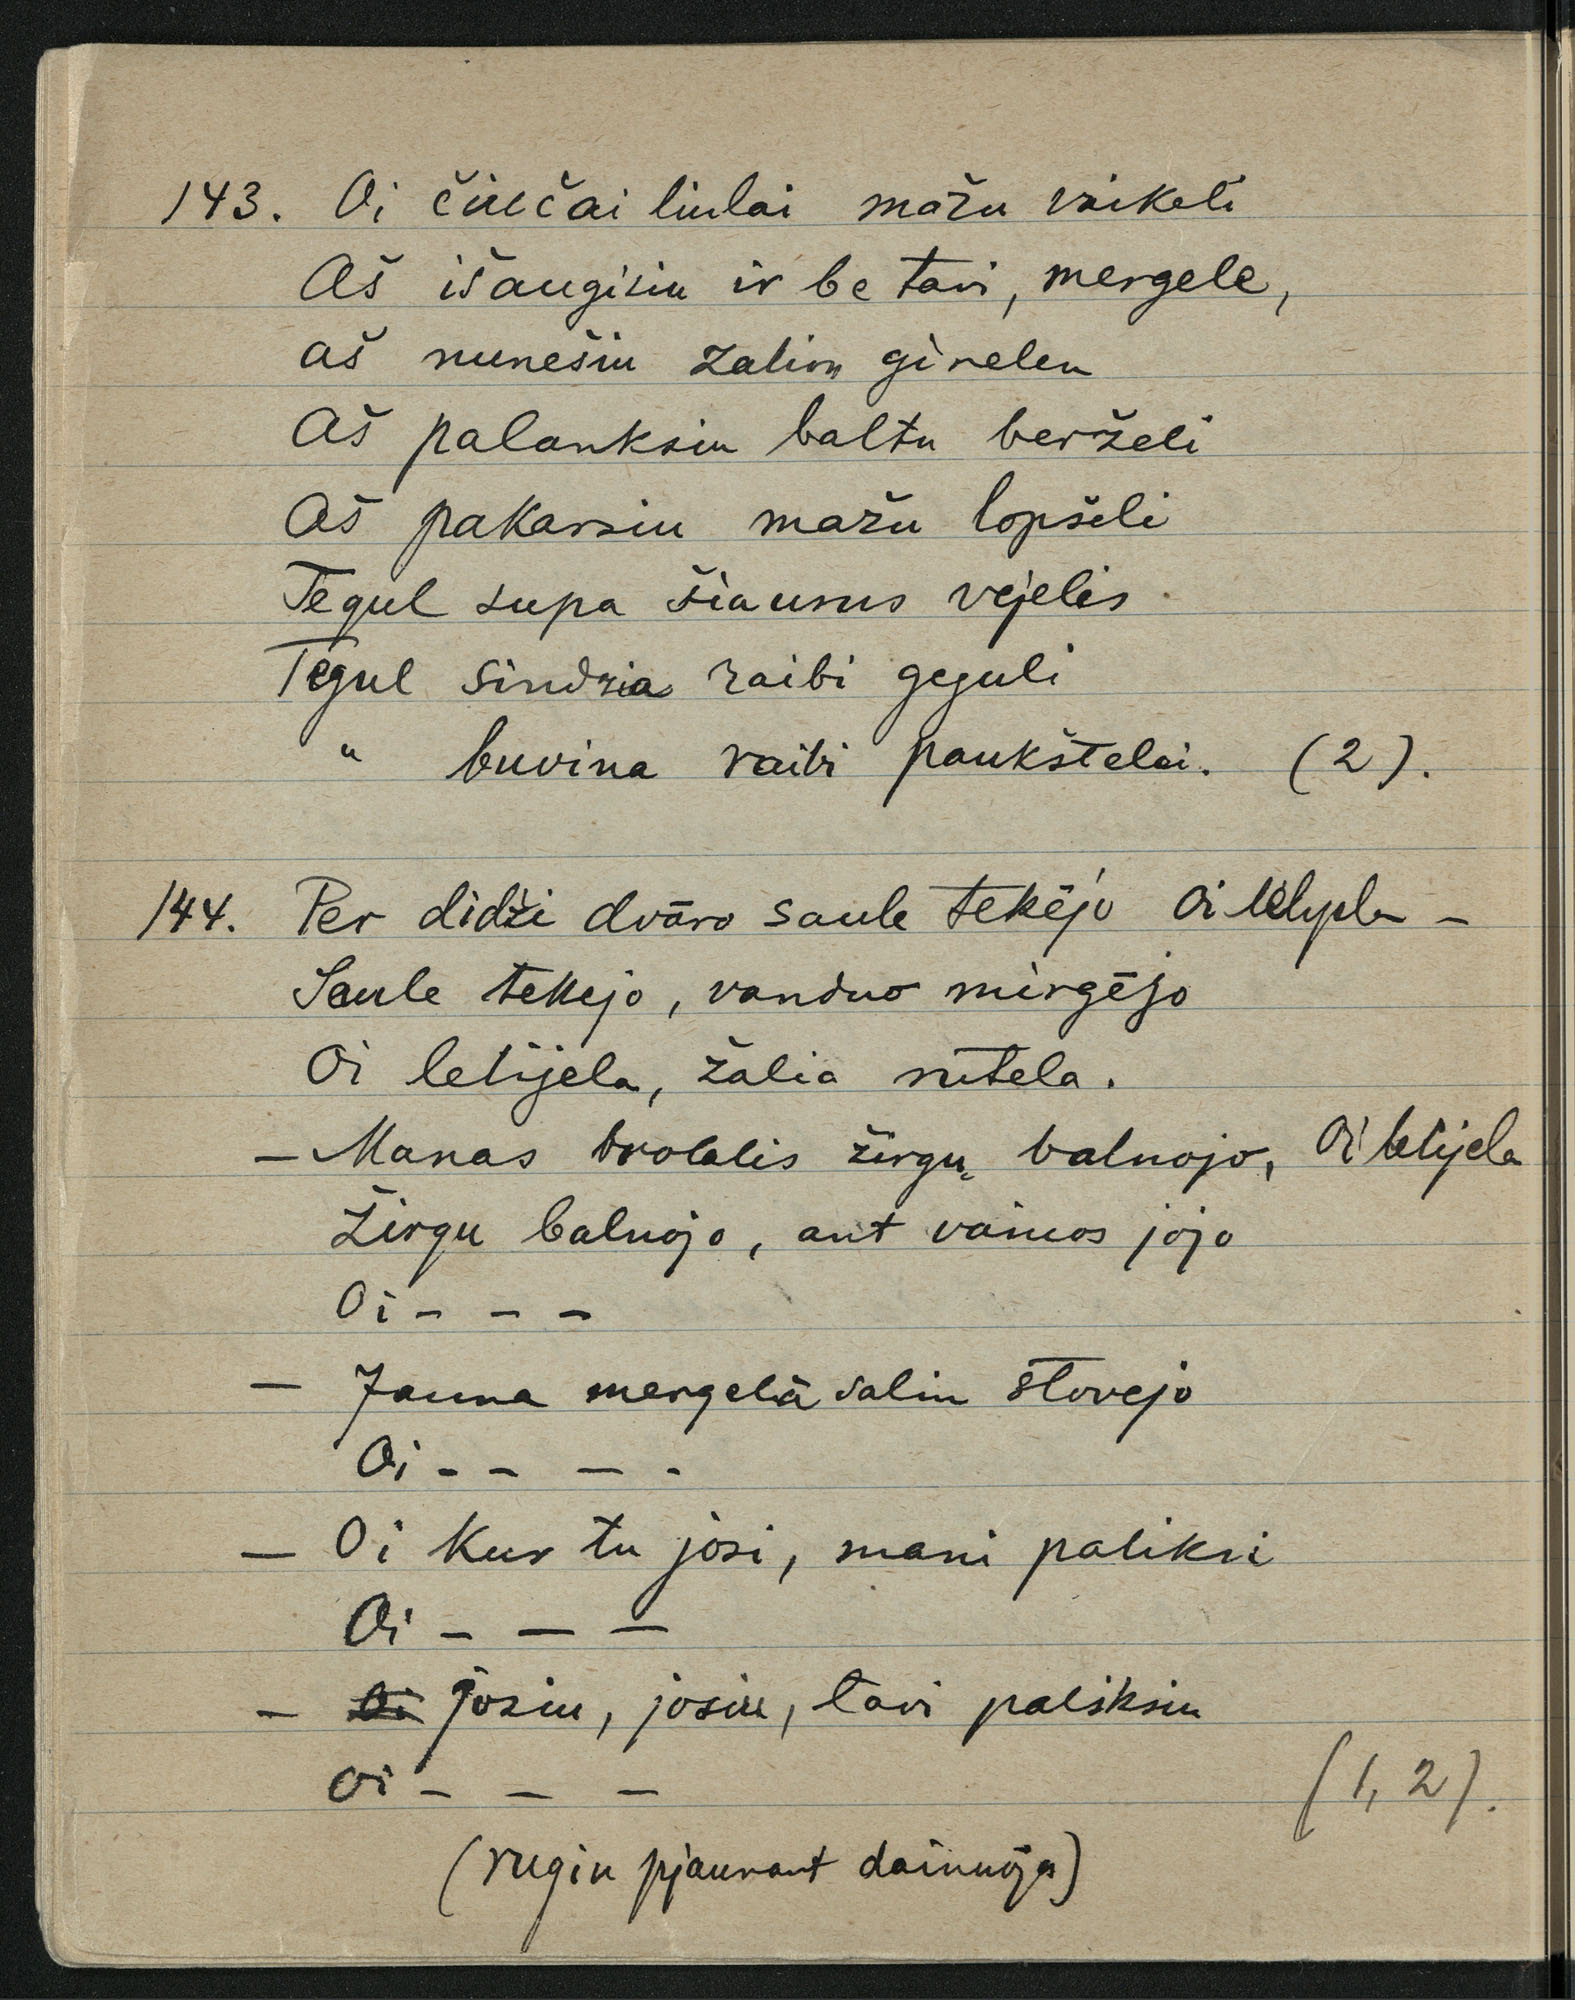 143. Oi čiučai liulai mažu vaikeli
Aš išaugisiu ir be tavi, mergele,
aš nunešiu žalion girelen
Aš palanksiu baltu berželi
Aš pakarsiu mažu lopšeli
Tegul supa šiaurus vėjelis
Tegul sindzia raibi geguli
" buvina raibi paukštelai. (2).
144. Per didži dvāro saule tekējo Oi lelyela –
Saule tekejo, vanduo mirgējo
Oi lelijela, žalia rūtela.
– Manas brolalis žirgu balnojo, Oi lelijela
Žirgu balnojo, ant vainos jojo
Oi – – –
– Jauna mergelā salin stovejo
Oi – – – –
– Oi kur tu josi, mani paliksi
Oi – – –
– Josiu, josiu, tavi paliksiu
Oi – – –
(1, 2).
(rugiu pjaunant dainuoja)